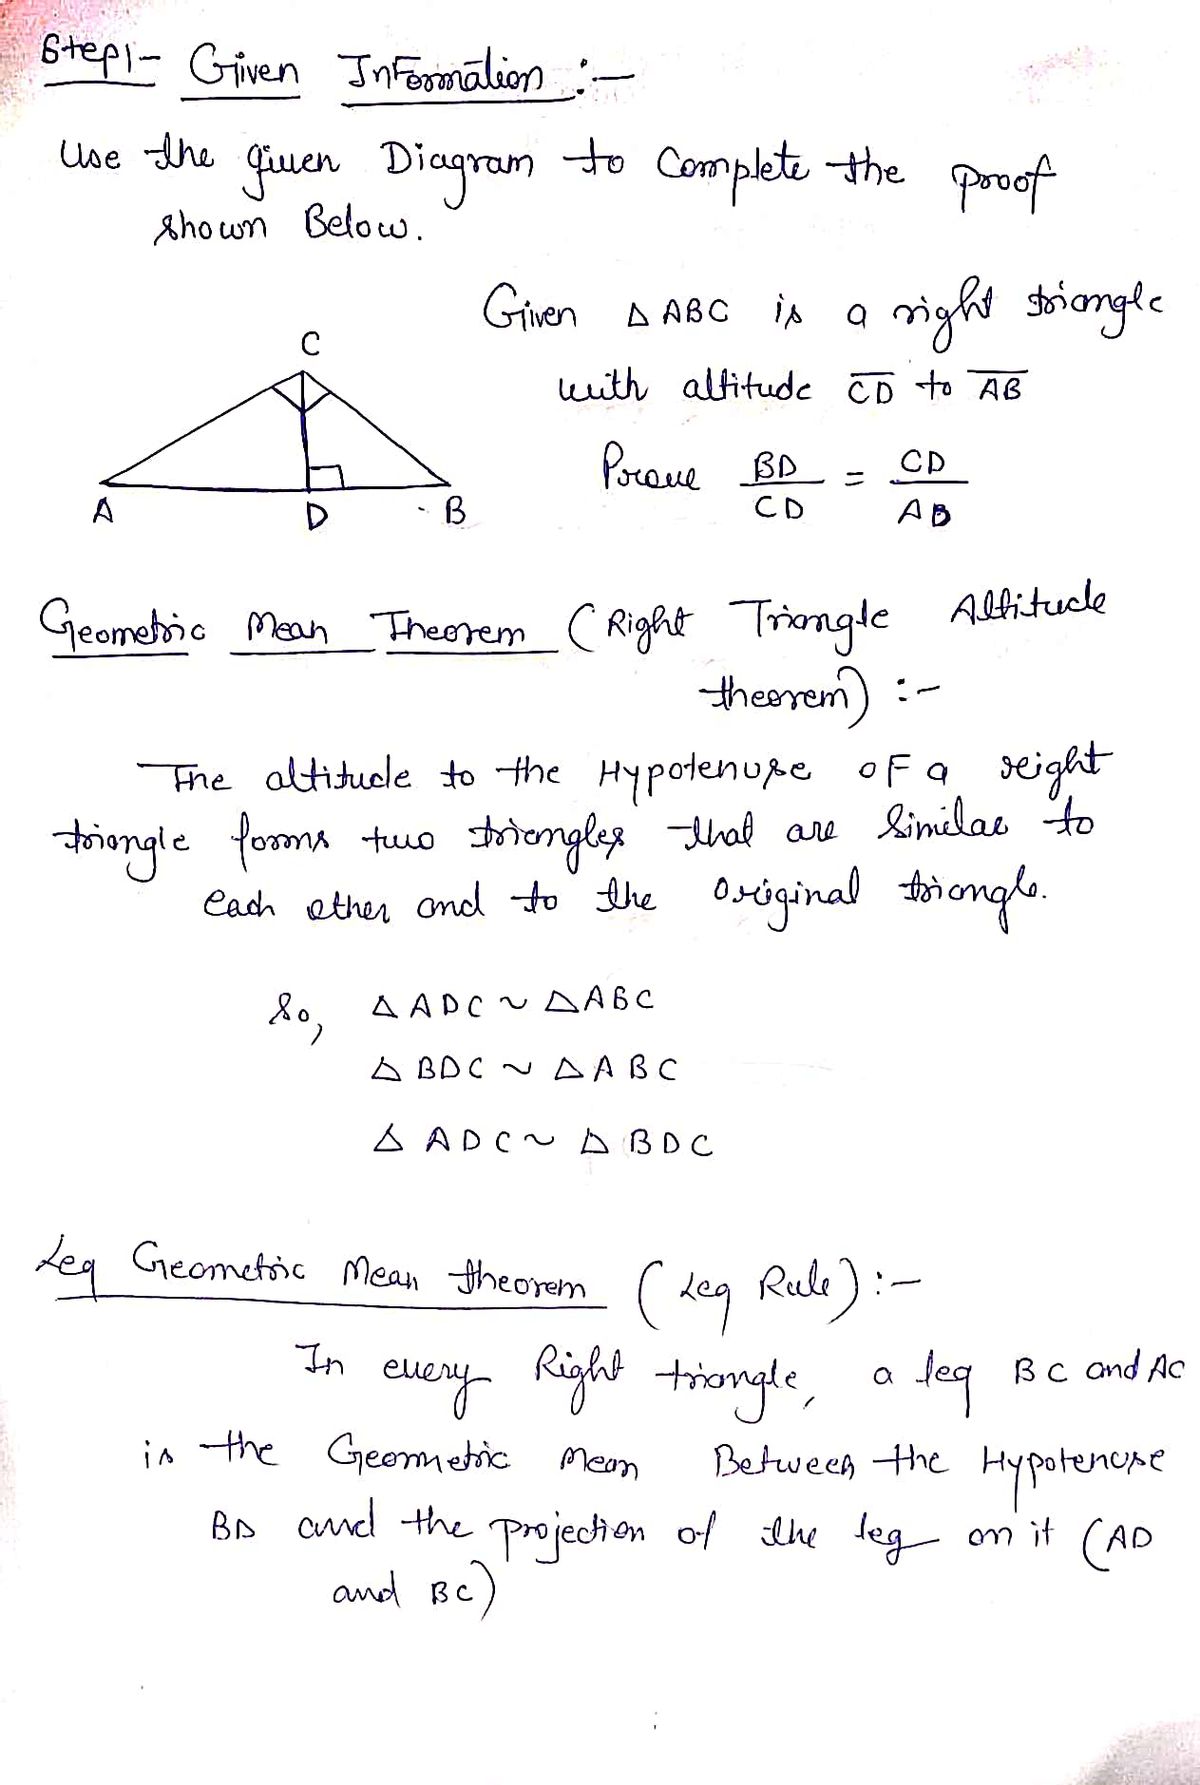 Step1- Given Information :-
Use the given Diagram to Complete the proof
shown Below.
Given △ ABC is a right triangle
with altitude CD to AB
Prove BD/CD = CD/AB
C
A
D
B
Geometric Mean Theorem (Right Triangle Altitude
theorem) :-
The altitude to the Hypotenuse of a right
triangle forms two triangles that are Similar to
each other and to the Original triangle.
So, △ ADC ~ △ABC
△ BDC ~ △ABC
△ ADC ~ △ BDC
Leg Geometric Mean theorem (Leg Rule) :-
In every Right triangle, a leg BC and AC
is the Geometric Mean Between the Hypotenuse
BD and the projection of the leg on it (AD
and BC)